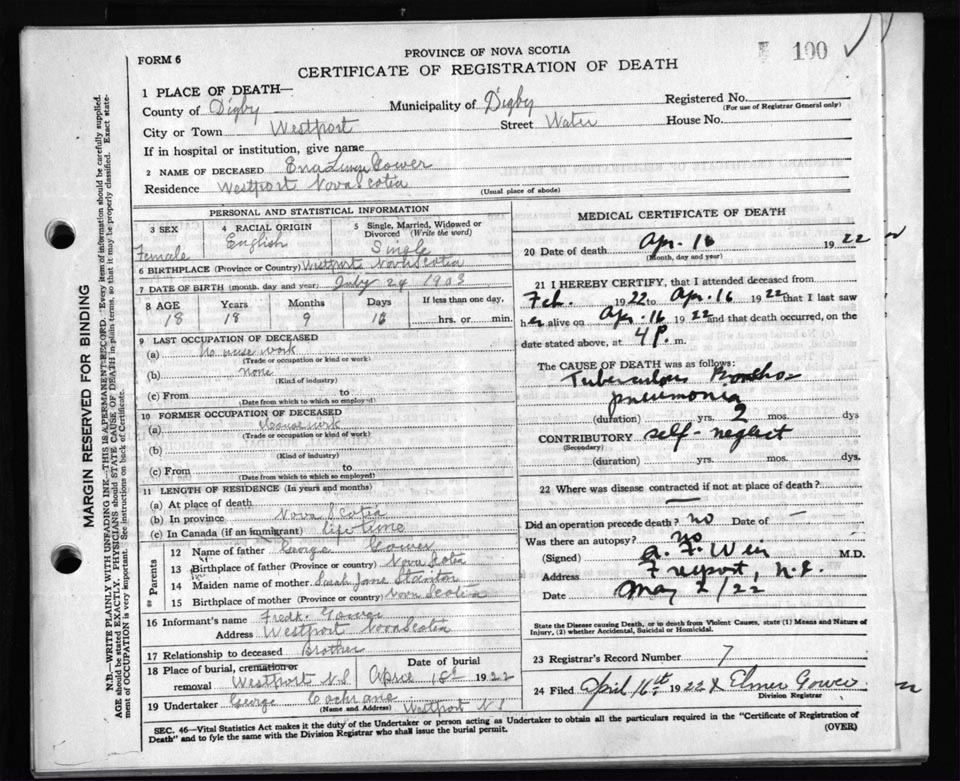 FORM 6
PROVINCE OF NOVA SCOTIA
CERTIFICATE OF REGISTRATION OF DEATH
190
1 PLACE OF DEATH—
County of Digby Municipality of Digby Registered No.
(For use of Registrar General only)
City or Town Westport Street Water House No.
If in hospital or institution, give name
2 NAME OF DECEASED Ena Gower
Residence Westport Nova Scotia
(Usual place of abode)
PERSONAL AND STATISTICAL INFORMATION
3 SEX Female
4 RACIAL ORIGIN English
5 Single, Married, Widowed or Divorced (Write the word) Single
6 BIRTHPLACE (Province or Country) Westport Nova Scotia
7 DATE OF BIRTH (month, day and year) July 24 1903
8 AGE Years Months Days If less than one day,
18 18 9 16 hrs. or min.
9 LAST OCCUPATION OF DECEASED
(a) House work
(Trade or occupation or kind or work)
(b) none
(Kind of industry)
(c) From to
(Date from which to which so employed)
10 FORMER OCCUPATION OF DECEASED
(a) House work
(Trade or occupation or kind of work)
(b)
(Kind of industry)
(c) From to
(Date from which to which so employed)
11 LENGTH OF RESIDENCE (In years and months)
(a) At place of death
(b) In province Nova Scotia
(c) In Canada (if an immigrant) life time
Parents
12 Name of father George Gower
13 Birthplace of father (Province or country) Nova Scotia
14 Maiden name of mother Sarah Jane Stanton
15 Birthplace of mother (Province or country) Nova Scotia
16 Informant's name Fredk Gower
Address Westport Nova Scotia
17 Relationship to deceased Brother
18 Place of burial, cremation or removal Westport N.S Date of burial April 18 1922
19 Undertaker George Cochrane Westport N S
(Name and Address)
MEDICAL CERTIFICATE OF DEATH
20 Date of death Apr. 16 1922
(Month, day and year)
21 I HEREBY CERTIFY, that I attended deceased from
Feb. 1922 to Apr. 16 1922 that I last saw
her alive on Apr. 16 1922 and that death occurred, on the
date stated above, at 4 P. m.
The CAUSE OF DEATH was as follows:
Tuberculous Broncho-
pneumonia
(duration) yrs. 2 mos. dys
CONTRIBUTORY self-neglect
(Secondary)
(duration) yrs. mos. dys.
22 Where was disease contracted if not at place of death?
—
Did an operation precede death? no Date of —
Was there an autopsy? no
(Signed) A. F. Weir M.D.
Address Freeport, N.S.
Date May 2/22
State the Disease causing Death, or in death from Violent Causes, state (1) Means and Nature of
Injury, (2) whether Accidental, Suicidal or Homicidal.
23 Registrar's Record Number 7
24 Filed April 16th 1922 Elmer Gower
Division Registrar
SEC. 46—Vital Statistics Act makes it the duty of the Undertaker or person acting as Undertaker to obtain all the particulars required in the "Certificate of Registration of
Death" and to fyle the same with the Division Registrar who shall issue the burial permit.
(OVER)
MARGIN RESERVED FOR BINDING
N.B.—WRITE PLAINLY WITH UNFADING INK—THIS IS A PERMANENT RECORD. Every item of information should be carefully supplied.
AGE should be stated EXACTLY. PHYSICIANS should STATE CAUSE OF DEATH in plain terms, so that it may be properly classified. Exact state-
ment of OCCUPATION is very important. See instructions on back of Certificate.